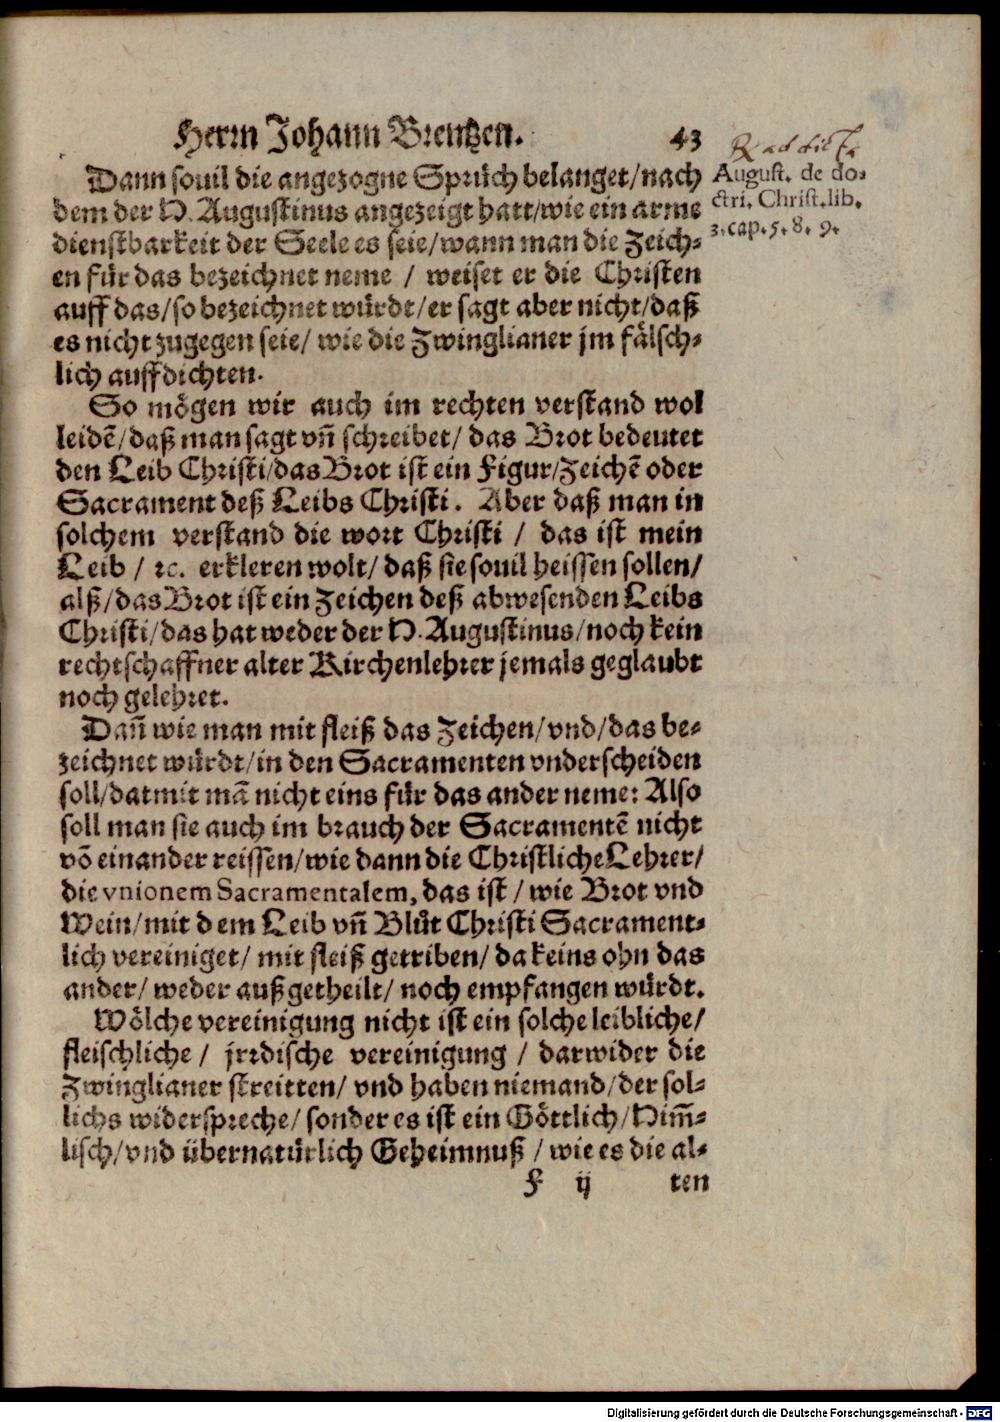 Herrn Johann Brentzen. 43
Dann souil die angezogne Sprüch belanget/nach
dem der H. Augustinus angezeigt hatt/wie ein arme
dienstbarkeit der Seele es seie/wann man die Zeich-
en für das bezeichnet neme / weiset er die Christen
auff das/so bezeichnet würdt/er sagt aber nicht/daß
es nicht zugegen seie/ wie die Zwinglianer jm fälsch-
lich auffdichten.
August. de do-
ctri. Christ. lib.
3. cap. 5. 8. 9.
So mögen wir auch im rechten verstand wol
leidē/daß man sagt vn̄ schreibet/ das Brot bedeutet
den Leib Christi/das Brot ist ein Figur/Zeichē oder
Sacrament deß Leibs Christi. Aber daß man in
solchem verstand die wort Christi / das ist mein
Leib / ꝛc. erkleren wolt/ daß sie souil heissen sollen/
alß/das Brot ist ein Zeichen deß abwesenden Leibs
Christi/das hat weder der H. Augustinus/noch kein
rechtschaffner alter Kirchenlehrer jemals geglaubt
noch gelehret.
Dan̄ wie man mit fleiß das Zeichen/vnd/das be-
zeichnet würdt/in den Sacramenten vnderscheiden
soll/datmit mā nicht eins für das ander neme: Also
soll man sie auch im brauch der Sacramentē nicht
vō einander reissen/wie dann die Christliche Lehrer/
die vnionem Sacramentalem, das ist / wie Brot vnd
Wein/mit dem Leib vn̄ Blůt Christi Sacrament-
lich vereiniget/ mit fleiß getriben/ da keins ohn das
ander/ weder außgetheilt/ noch empfangen würdt.
Wölche vereinigung nicht ist ein solche leibliche/
fleischliche / jrrdische vereinigung / darwider die
Zwinglianer streitten/ vnd haben niemand/der sol-
lichs widerspreche/ sonder es ist ein Göttlich/Him̄-
lisch/vnd übernatürlich Geheimnuß / wie es die al-
F ij ten
Digitalisierung gefördert durch die Deutsche Forschungsgemeinschaft - DFG